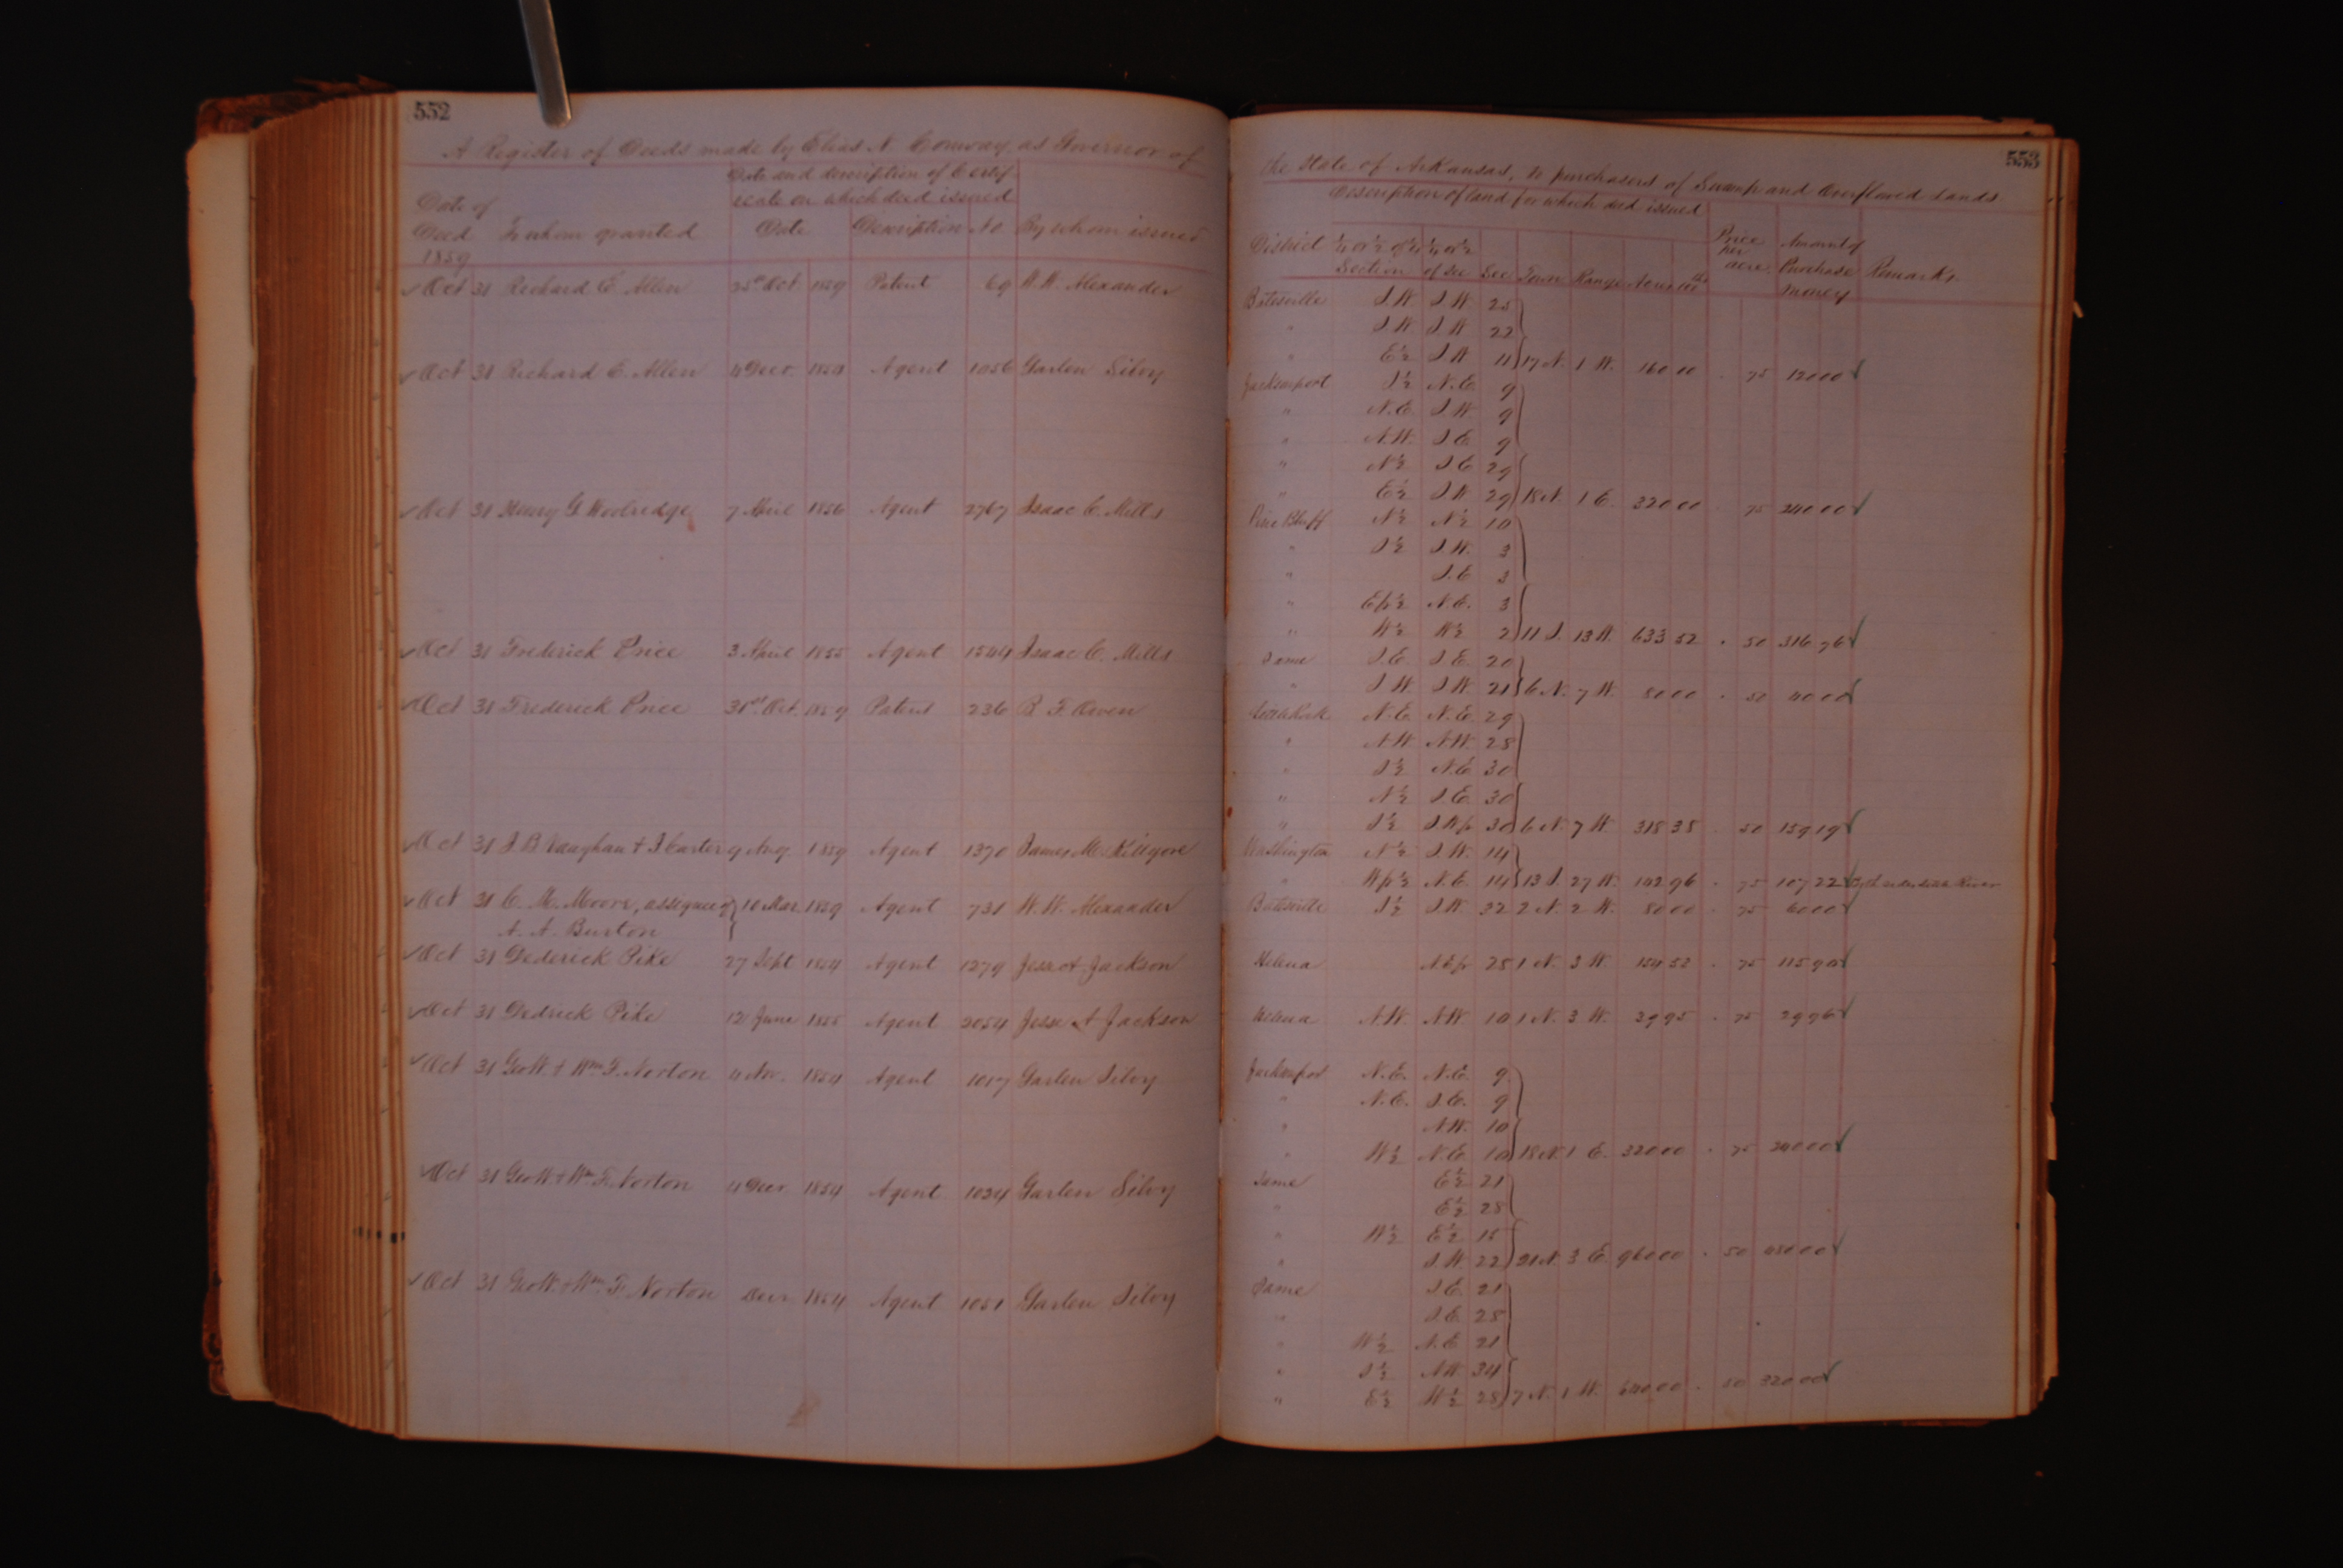 552
A Register of Deeds made by Elias N. Conway, as Governor of
Date and description of Certif-
icate on which deed issued
Date of
Deed To whom granted Date Description No By whom issued
1859
Oct 31 Richard E Allen 25th Oct 1859 Patent 69 W.W. Alexander
Oct 31 Richard E. Allen 4 Decr. 1854 Agent 1056 Garlen Silvy
Oct 31 Henry G Woolredge 7 April 1856 Agent 2767 Isaac C. Mills
Oct 31 Frederick Price 3 April 1855 Agent 1544 Isaac C. Mills
Oct 31 Frederick Price 31st Oct. 1859 Patent 236 B. F. Owen
Oct 31 J. B Vaughan & J Carter 9 Aug. 1859 Agent 1370 James M. Kilgore
Oct 31 C. M. Moore, assignee of 10 Mar 1859 Agent 731 W. W. Alexander
A. A. Burton
Oct 31 Dederick Pike 27 Sept 1854 Agent 1279 Jesse A. Jackson
Oct 31 Dedrick Pike 12 June 1855 Agent 2054 Jesse A Jackson
Oct 31 Geo W. & Wm F. Norton 4 Nov. 1854 Agent 1017 Garlen Silvy
Oct 31 Geo W. & Wm F. Norton 4 Decr. 1854 Agent 1034 Garlen Silvy
Oct 31 Geo W. & Wm F. Norton Decr 1854 Agent 1051 Garlen Silvy
553
the State of Arkansas, to purchasers of Swamp and Overflowed Lands
Description of land for which deed issued
District ¼ or ½ of ¼ ¼ or ½ Price per acre. Amount of
Section of Sec Sec Town Range Acres 100ths Purchase Remarks.
money
Batesville S.W S.W 25
" S.W S.W 22
" E½ S.W 11 17 N. 1 W. 160 00 . 75 120 00
Jacksonport S½ N.E. 9
" N.E. S.W 9
" N.W. S.E. 9
" N½ S.E 29
" E½ S.W 29 18 N. 1 E. 320 00 . 75 240 00
Pine Bluff N½ N½ 10
" S½ S.W. 3
" S.E 3
" E fr ½ N.E. 3
" W½ W½ 2 11 S. 13 W. 633 52 . 50 316 76
Same S.E. S.E. 20
" S.W. S.W. 21 6 N. 7 W. 80 00 . 50 40 00
Little Rock N.E. N.E. 29
" N.W. N.W. 28
" S½ N.E 30
" N½ S.E. 30
" S½ S.W fr 30 6 N. 7 W. 318 38 . 50 159 19
Washington N½ S.W. 14
" W fr ½ N.E. 14 13 S. 27 W. 142 96 . 75 107 22 River
Batesville S½ S.W 32 2 N. 2 W. 80 00 . 75 60 00
Helena N.E fr 25 1 N. 3 W. 154 53 . 75 115 90
Helena N.W. N.W 10 1 N. 3 W. 39 95 . 75 29 96
Jacksonport N.E. N.E. 9
" N.E. S.E. 9
" N.W. 10
" W½ N.E. 10 18 N. 1 E. 320 00 . 75 240 00
Same E½ 21
" E½ 28
" W½ E½ 15
" S.W. 22 21 N. 3 E. 960 00 . 50 480 00
Same S.E. 21
" S.E. 28
" W½ N.E 21
" S½ N.W. 34
" E½ W½ 28 7 N. 1 W. 640 00 . 50 320 00